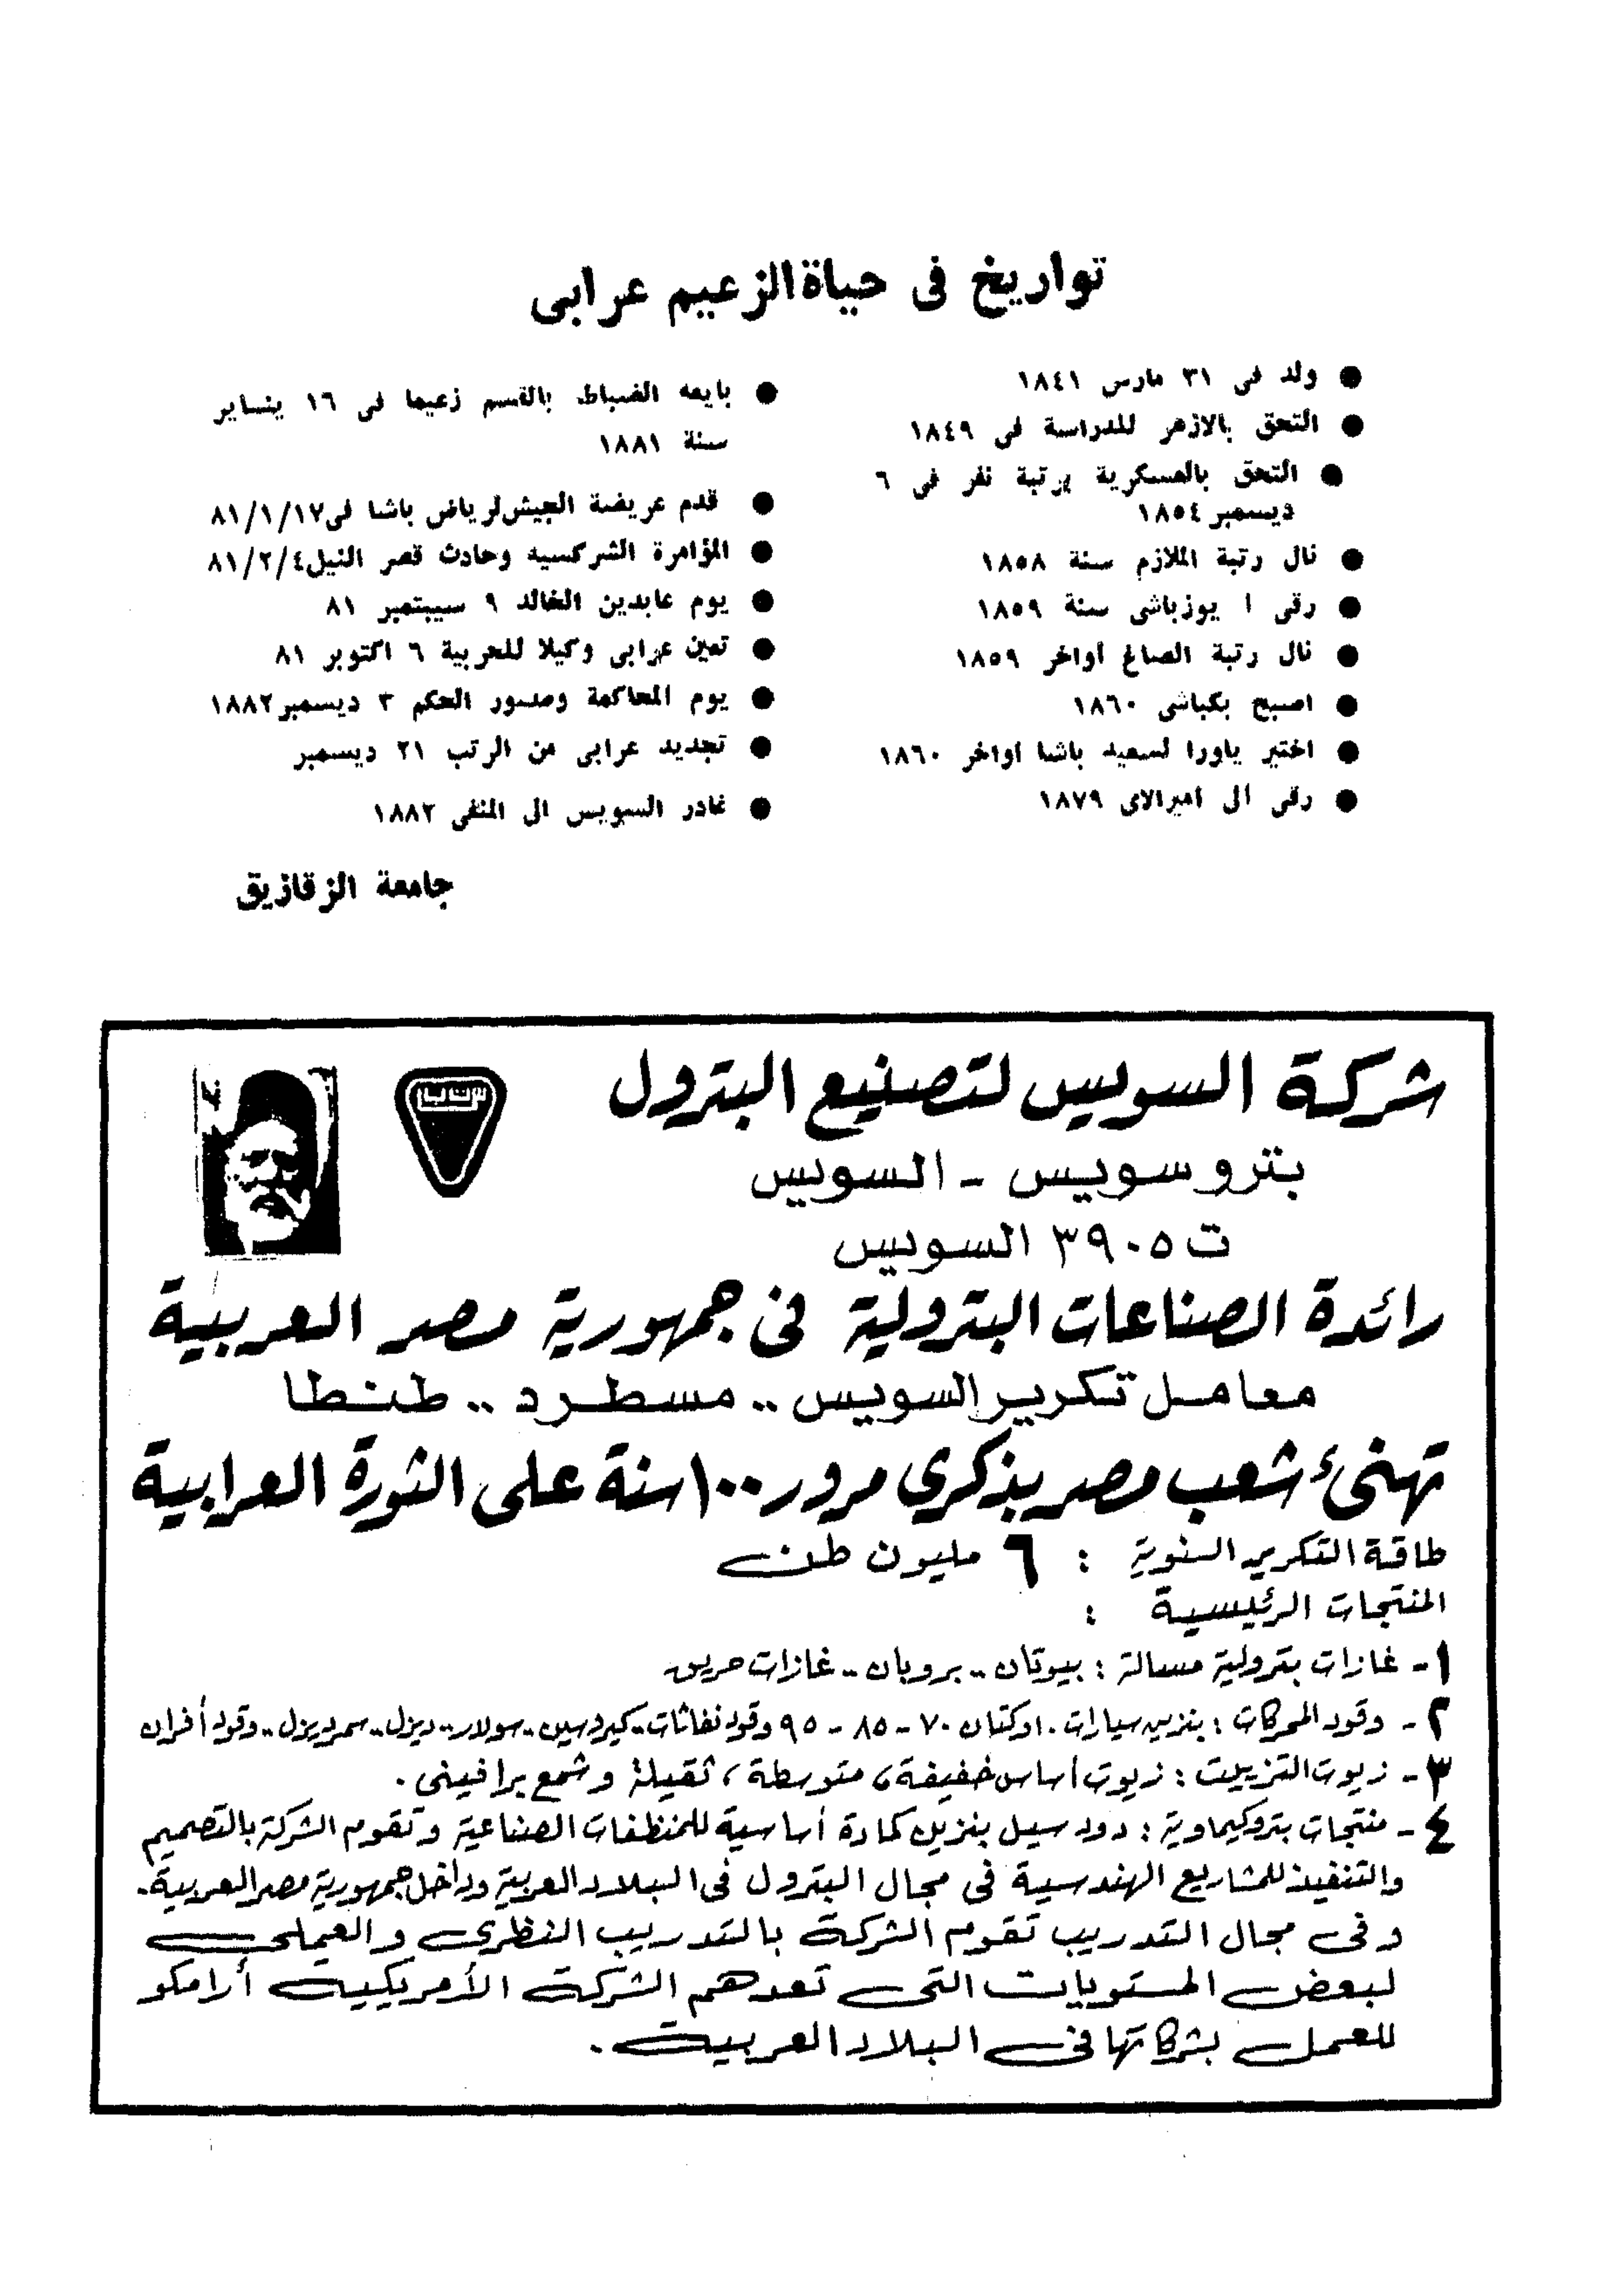 تواريخ فى حياة الزعيم عرابى
● ولد فى ٣١ مارس ١٨٤١
● التحق بالازهر للدراسة فى ١٨٤٩
● التحق بالعسكرية برتبة نفر فى ٦
ديسمبر ١٨٥٤
● نال رتبة الملازم سنة ١٨٥٨
● رقى ا يوزباشى سنة ١٨٥٩
● نال رتبة الصاغ أواخر ١٨٥٩
● اصبح بكباشى ١٨٦٠
● اختير ياورا لسعيد باشا اواخر ١٨٦٠
● رقى الى اميرالاى ١٨٧٩
● بايعه الضباط بالقسم زعيما فى ١٦ ينساير
سنة ١٨٨١
● قدم عريضة الجيش لرياض باشا فى ٨١/١/١٧
● المؤامرة الشركسيه وحادث قصر النيل ٨١/٢/٤
● يوم عابدين الخالد ٩ سيبتمبر ٨١
● تعين عرابى وكيلا للحربية ٦ اكتوبر ٨١
● يوم المحاكمة وصدور الحكم ٣ ديسمبر ١٨٨٢
● تجديد عرابى من الرتب ٢١ ديسمبر
● غادر السويس الى المنفى ١٨٨٢
جامعة الزقازيق
شركة السويس لتصنيع البترول
بترو سويس - السويس
ت ٣٩٠٥ السويس
رائدة الصناعات البترولية فى جمهورية مصر العربية
معامل تكرير السويس .. مسطرد .. طنطا
تهنئ شعب مصر بذكري مرور ١٠٠ سنة على الثورة العرابية
طاقة التكرير السنوية : ٦ مليون طن
المنتجات الرئيسية :
١ - غازات بترولية مسالة : بيوتان .. بروبان .. غازات حريق
٢ - وقود المحركات : بنزين سيارات . اوكتان ٧٠ - ٨٥ - ٩٥ وقود نفاثات .. كيروسين .. سولار .. ديزل .. سمرديزل .. وقود أفران
٣ - زيوت التزييت : زيوت أساس خفيفة ، متوسطة ، ثقيلة وشمع برافينى .
٤ - منتجات بتروكيماوية : دود سيل بنزين كمادة أساسية للمنظفات الصناعية وتقوم الشركة بالتصميم
والتنفيذ للمشاريع الهندسية فى مجال البترول فى البلاد العربية وداخل جمهورية مصر العربية .
وفى مجال التدريب تقوم الشركة بالتدريب النظرى والعملى
لبعض المستويات التى تعدهم الشركة الأمريكية أرامكو
للعمل بشركاتها فى البلاد العربية .